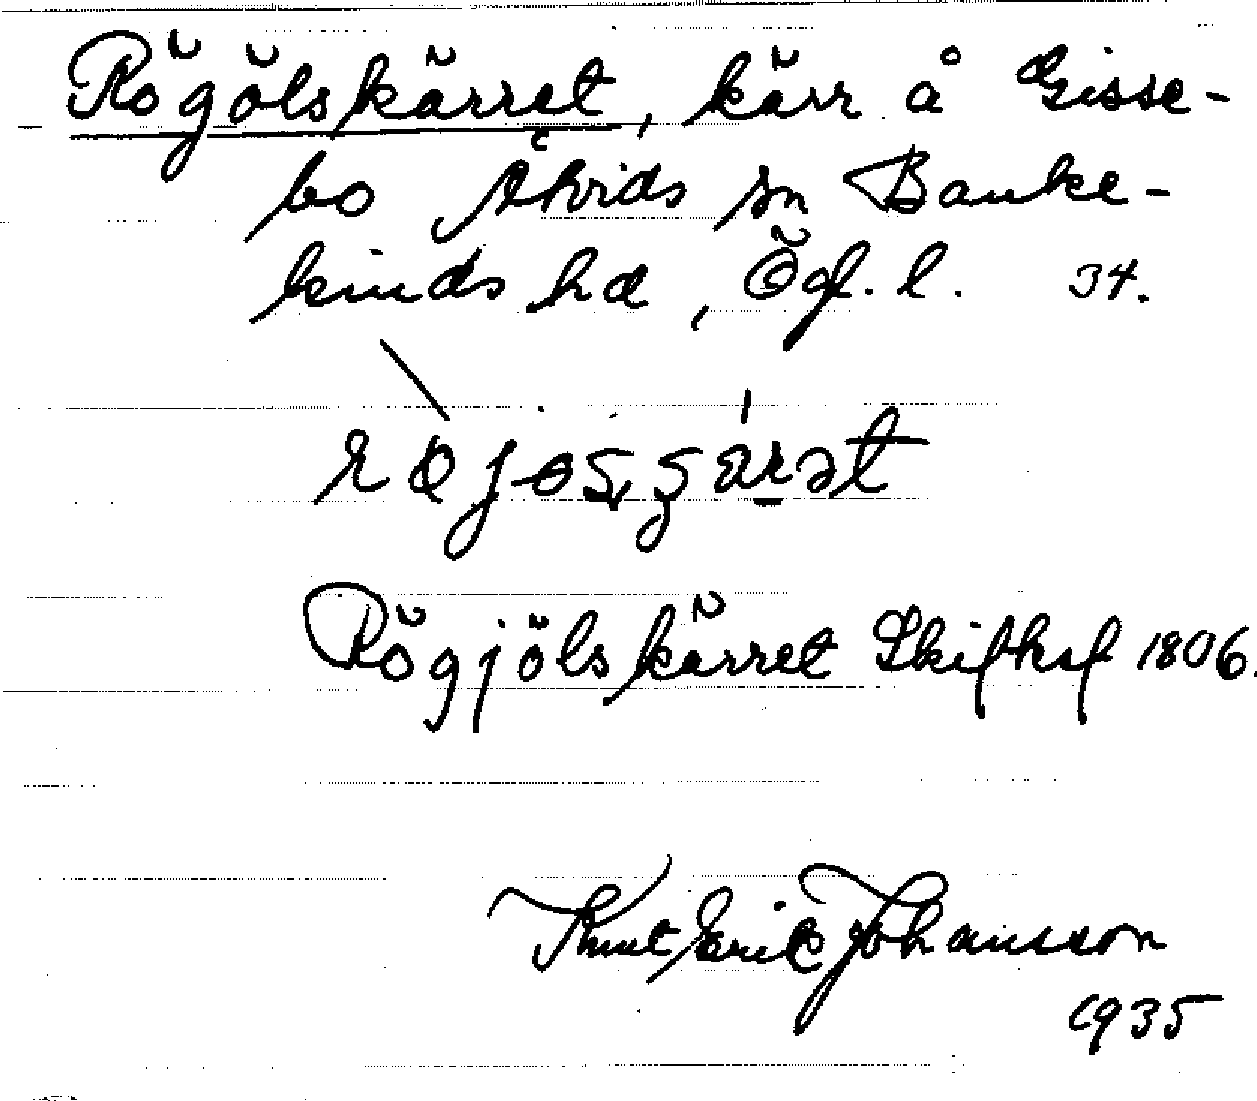 Rögölskärret, kärr å Gisse-
bo Åtvids sn Banke-
kinds hd, Ögl. l. 34.
Rögjölskärret Skifksf 1806.
Knut Erik Johansson
1935